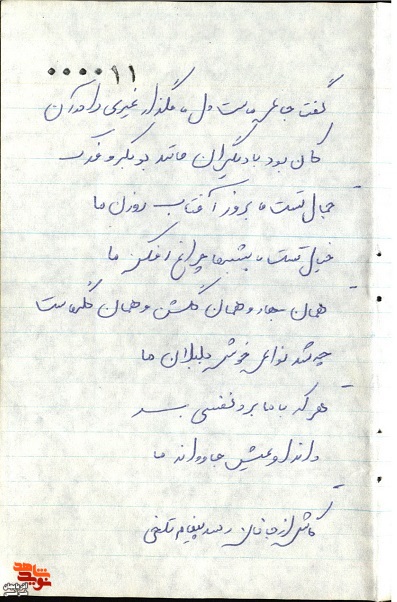 ۰۰۰۰۱۱
گفت جا عمر ماست دل ما مگذار غیری را در آن
کان بود با دیگران مانند بوبکر و
جمال تست ما بروز آفتاب روزن ما
خیال تست ما بشبها چراغ افکن ما
همان بهار و همان گلشن و همان گلهاست
چه شد نوای خوش بلبلان ما
هر که با ما برد نفسی بسر
داند او عیش جاودانه ما
کاش از جانان رسد پیغام تلخی
نوید شاهد